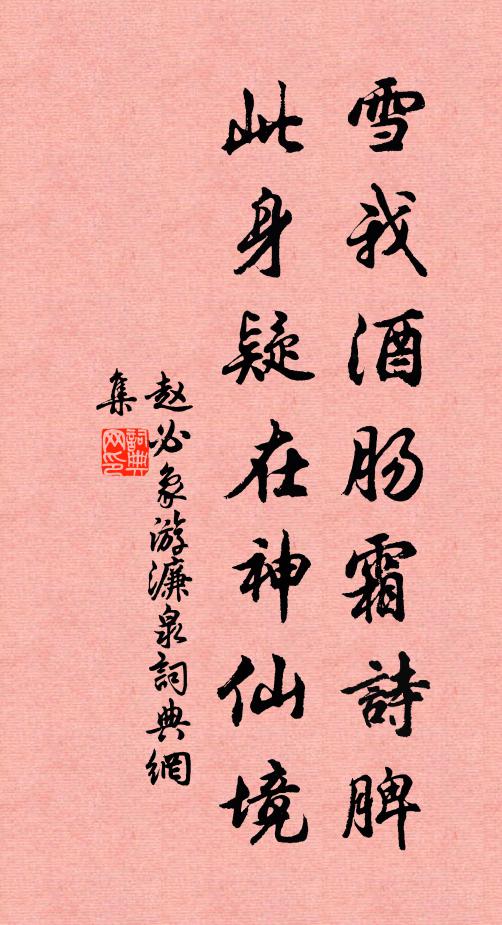 雪我酒肠霜詩脾
此身疑在神仙境
赵必象游濂泉詞典網
集
詞典网印